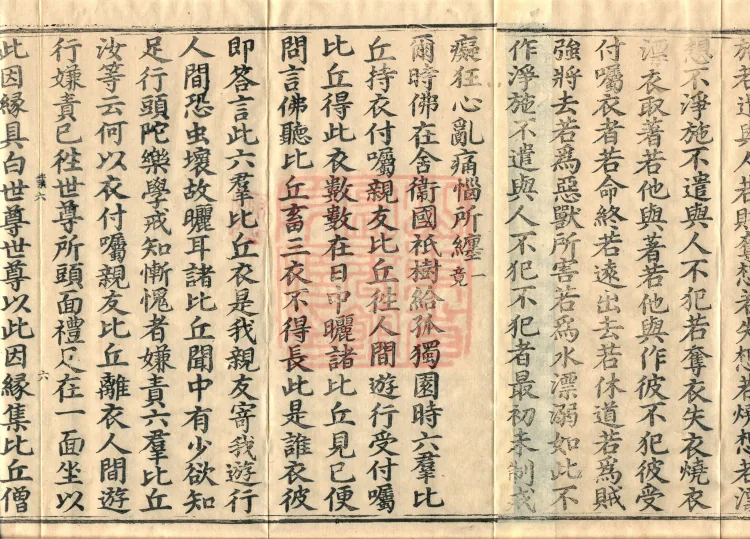 施若遣與人若賊奪想若失想若燒想若漂
想不淨施不遣與人不犯若奪衣失衣燒衣
漂衣取著若他與著若他與作彼不犯彼受
付囑衣者若命終若遠出去若休道若為賊
強將去若爲惡獸所害若爲水漂溺如此不
作淨施不遣與人不犯不犯者最初未制戒
癡狂心亂痛惱所纏一竟
爾時佛在舍衛國祇樹給孤獨園時六羣比
丘持衣付囑親友比丘徃人間遊行受付囑
比丘得此衣數數在日中曬諸比丘見已便
問言佛聽比丘畜三衣不得長此是誰衣彼
即答言此六羣比丘衣是我親友寄我遊行
人間恐虫壞故曬耳諸比丘聞中有少欲知
足行頭陀樂學戒知慚愧者嫌責六羣比丘
汝等云何以衣付囑親友比丘離衣人間遊
行嫌責已徃世尊所頭面禮足在一面坐以
六
此因緣具白世尊世尊以此因緣集比丘僧